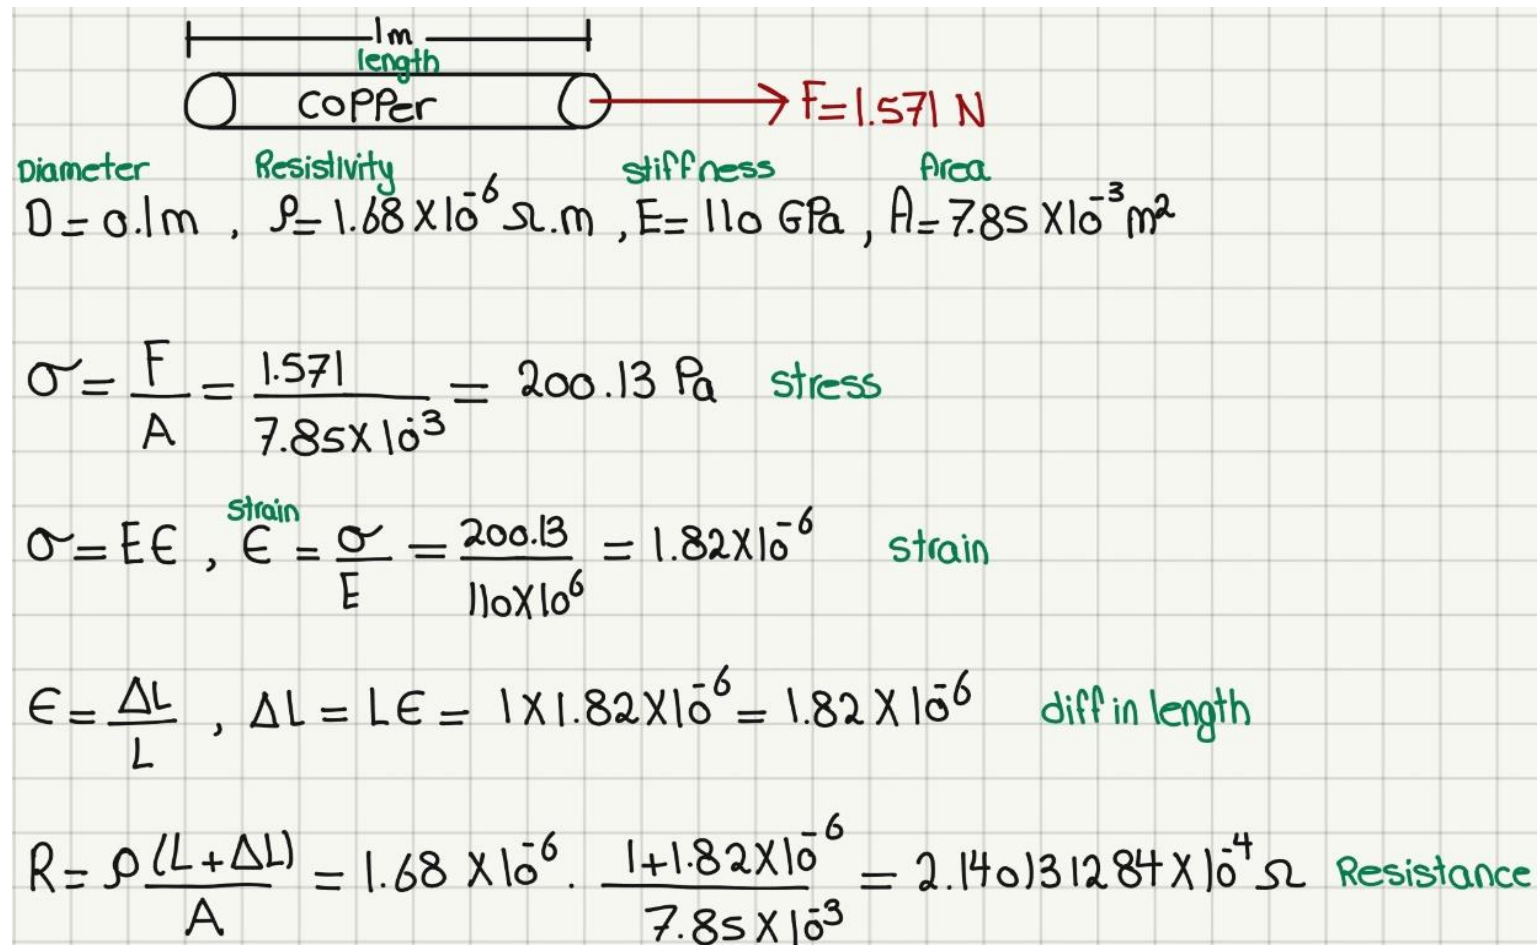 1m
length
COPPer
F=1.571 N
Diameter Resistivity stiffness Area
D=0.1m , ρ=1.68X10⁻⁶ Ω.m , E=110 GPa , A=7.85 X10⁻³m²
σ = F/A = 1.571/7.85X10⁻³ = 200.13 Pa stress
strain
σ=Eϵ , ϵ = σ/E = 200.13/110X10⁶ = 1.82X10⁻⁶ strain
ϵ = ΔL/L , ΔL = Lϵ = 1X1.82X10⁻⁶ = 1.82 X 10⁻⁶ diff in length
R = ρ(L+ΔL)/A = 1.68 X10⁻⁶ . 1+1.82X10⁻⁶/7.85 X10⁻³ = 2.140131284X10⁻⁴ Ω Resistance